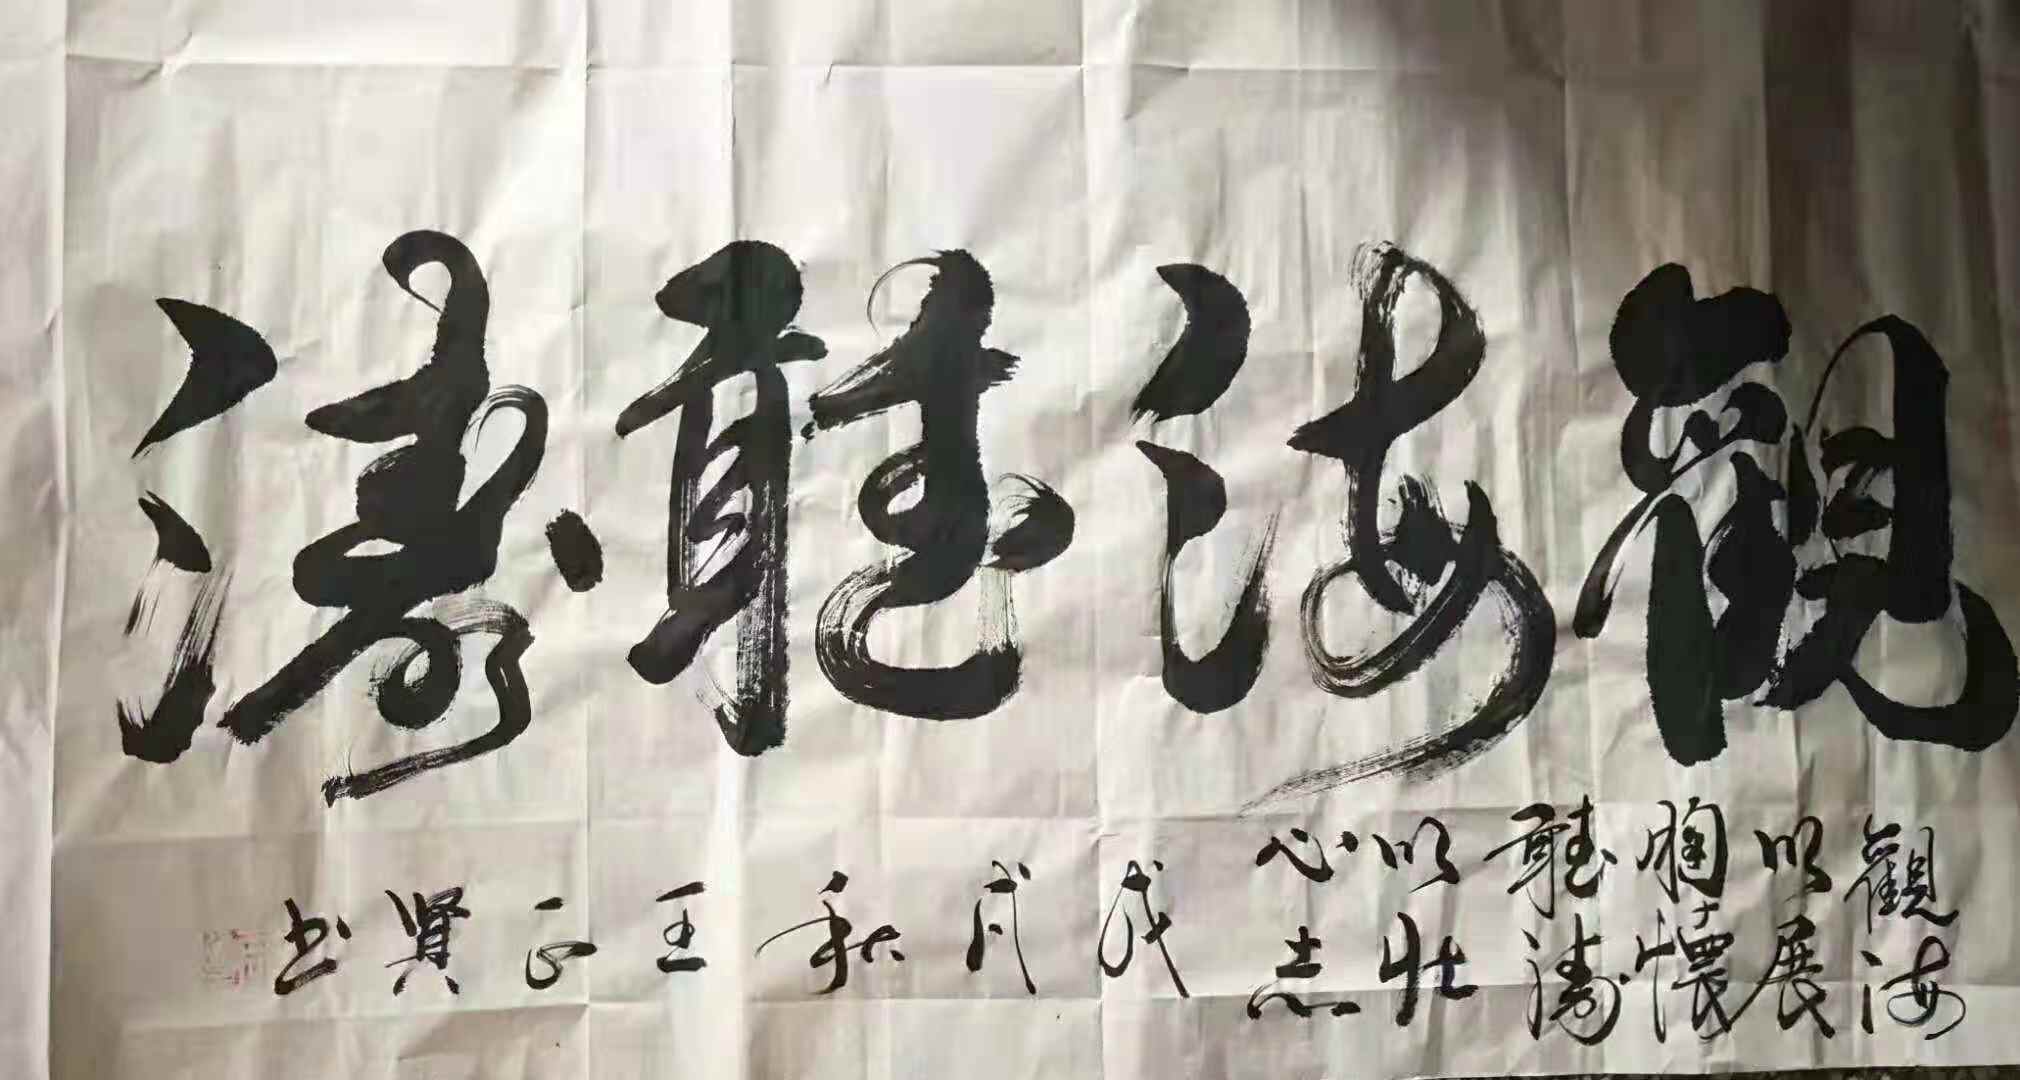 觀海聽濤
觀海
以展
胸懷
聽濤
以壯
心志
戊戌秋王正賢书